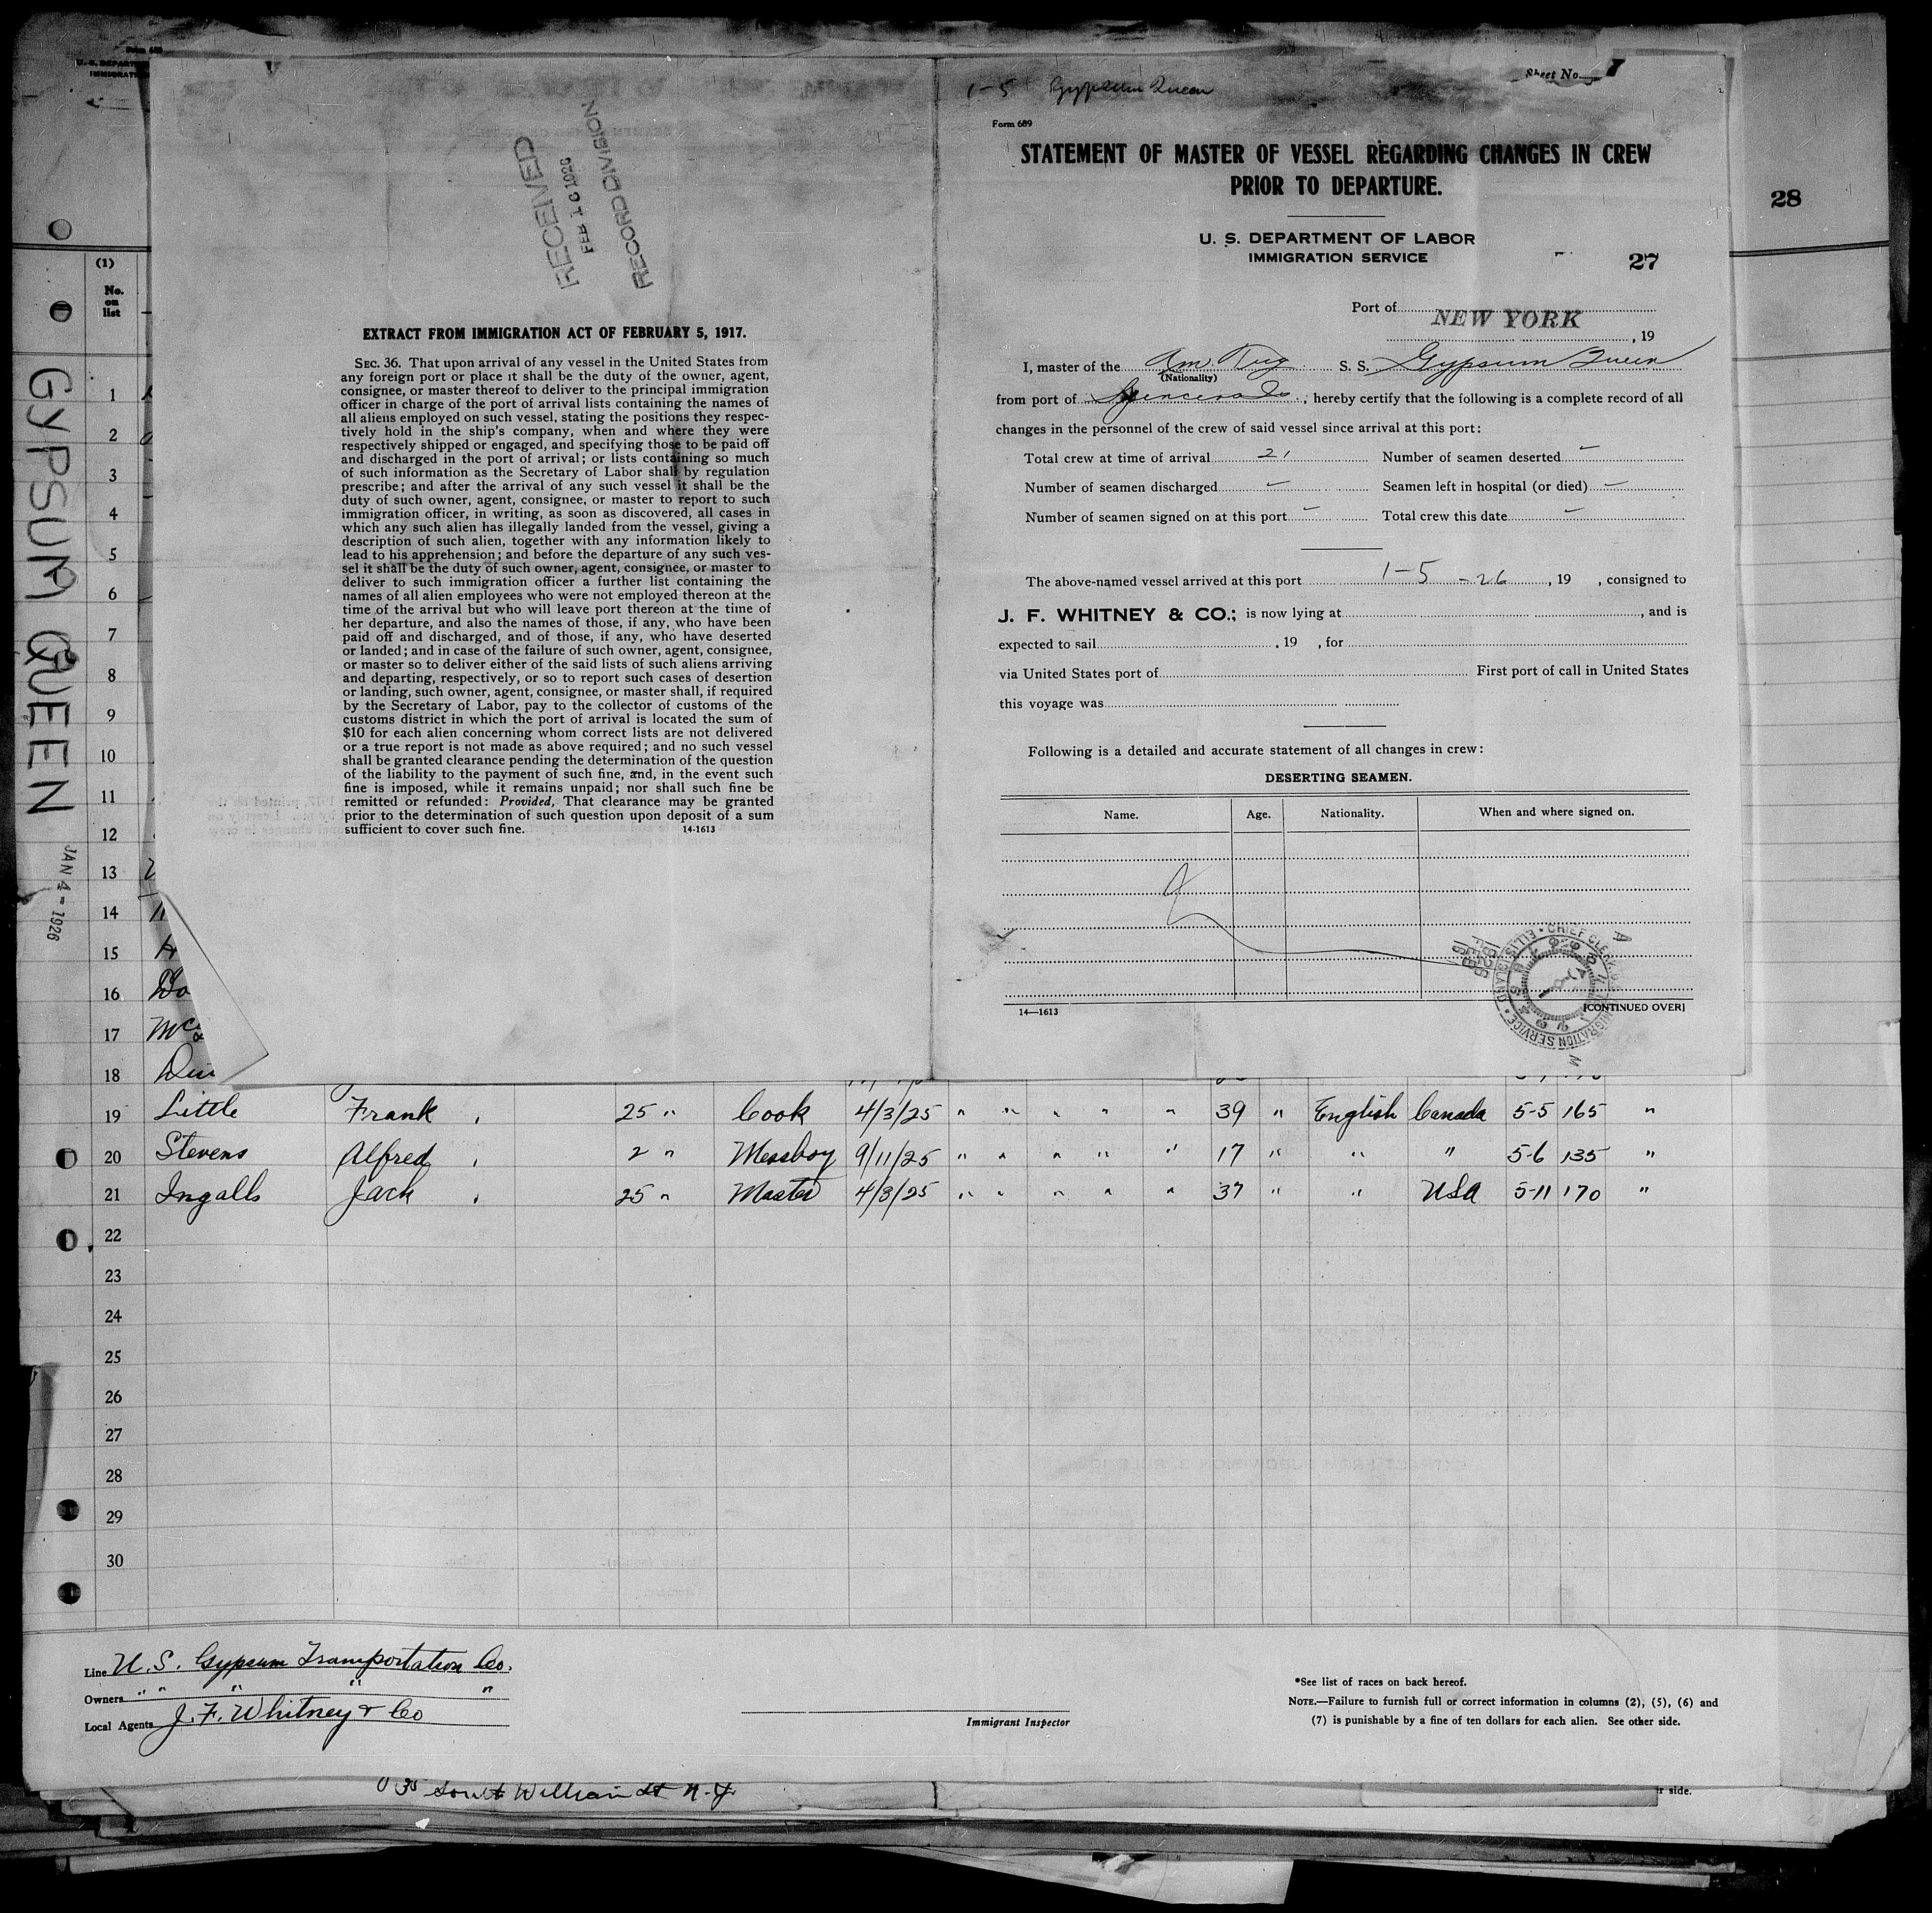 Form 689
U. S. DEPART
IMMIGRATI
28
(1)
No.
on
list
GYPSUM QUEEN
JAN 4 - 1926
RECEIVED
FEB 16 1926
RECORD DIVISION
EXTRACT FROM IMMIGRATION ACT OF FEBRUARY 5, 1917.
SEC. 36. That upon arrival of any vessel in the United States from
any foreign port or place it shall be the duty of the owner, agent,
consignee, or master thereof to deliver to the principal immigration
officer in charge of the port of arrival lists containing the names of
all aliens employed on such vessel, stating the positions they respec-
tively hold in the ship's company, when and where they were
respectively shipped or engaged, and specifying those to be paid off
and discharged in the port of arrival; or lists containing so much
of such information as the Secretary of Labor shall by regulation
prescribe; and after the arrival of any such vessel it shall be the
duty of such owner, agent, consignee, or master to report to such
immigration officer, in writing, as soon as discovered, all cases in
which any such alien has illegally landed from the vessel, giving a
description of such alien, together with any information likely to
lead to his apprehension; and before the departure of any such ves-
sel it shall be the duty of such owner, agent, consignee, or master to
deliver to such immigration officer a further list containing the
names of all alien employees who were not employed thereon at the
time of the arrival but who will leave port thereon at the time of
her departure, and also the names of those, if any, who have been
paid off and discharged, and of those, if any, who have deserted
or landed; and in case of the failure of such owner, agent, consignee,
or master so to deliver either of the said lists of such aliens arriving
and departing, respectively, or so to report such cases of desertion
or landing, such owner, agent, consignee, or master shall, if required
by the Secretary of Labor, pay to the collector of customs of the
customs district in which the port of arrival is located the sum of
$10 for each alien concerning whom correct lists are not delivered
or a true report is not made as above required; and no such vessel
shall be granted clearance pending the determination of the question
of the liability to the payment of such fine, and, in the event such
fine is imposed, while it remains unpaid; nor shall such fine be
remitted or refunded: Provided, That clearance may be granted
prior to the determination of such question upon deposit of a sum
sufficient to cover such fine. 14-1613
Sheet No. 1
1-5 Gypsum Queen
Form 689
STATEMENT OF MASTER OF VESSEL REGARDING CHANGES IN CREW
PRIOR TO DEPARTURE.
U. S. DEPARTMENT OF LABOR
IMMIGRATION SERVICE
27
Port of NEW YORK
, 19
I, master of the Am Tug S. S. Gypsum Queen
(Nationality)
from port of , hereby certify that the following is a complete record of all
changes in the personnel of the crew of said vessel since arrival at this port:
Total crew at time of arrival 21 Number of seamen deserted -
Number of seamen discharged - Seamen left in hospital (or died) -
Number of seamen signed on at this port - Total crew this date -
The above-named vessel arrived at this port 1-5-26, 19 , consigned to
J. F. WHITNEY & CO.; is now lying at , and is
expected to sail , 19 , for
via United States port of First port of call in United States
this voyage was
Following is a detailed and accurate statement of all changes in crew:
DESERTING SEAMEN.
Name. Age. Nationality. When and where signed on.
CHIEF CLERK IMMIGRATION SERVICE ELLIS ISLAND
1926 FEB 16
A
M
14—1613 [CONTINUED OVER]
1
2
3
4
5
6
7
8
9
10
11
12
13
14
15
16 Do
17 Mc
18
19 Little Frank 25 " Cook 4/3/25 " " " " " 39 " English Canada 5-5 165 "
20 Stevens Alfred 2 " Messboy 9/11/25 " " " " " 17 " " " 5-6 135 "
21 Ingalls Jack 25 " Master 4/3/25 " " " " " 37 " " USA 5-11 170 "
22
23
24
25
26
27
28
29
30
Line U. S. Gypsum Transportation Co.
Owners " " " " "
Local Agents J. F. Whitney & Co
Immigrant Inspector
*See list of races on back hereof.
NOTE.—Failure to furnish full or correct information in columns (2), (5), (6) and
(7) is punishable by a fine of ten dollars for each alien. See other side.
South William St N.Y.
r side.